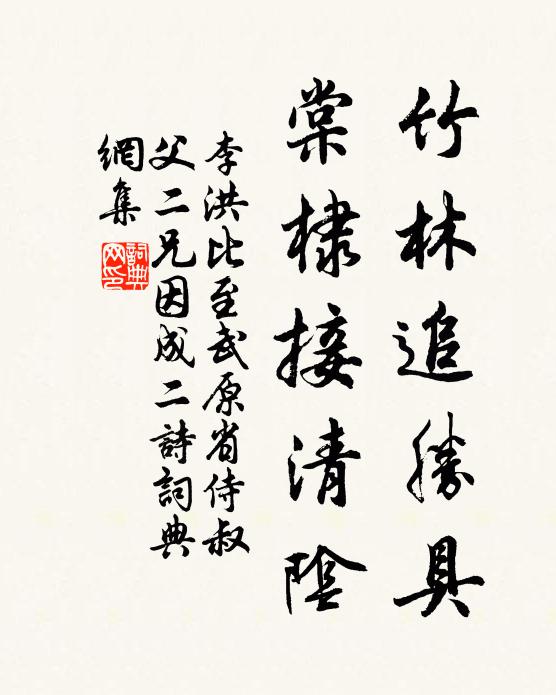 竹林追勝具
棠棣接清陰
李洪比至武原省侍叔
父二兄因成二詩詞典
網集
詞典
网印